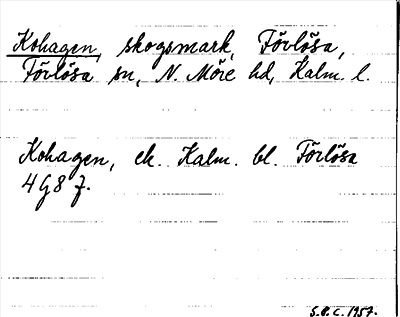 Kohagen, skogsmark, Förlösa,
Förlösa sn, N. Möre hd, Kalm. l.
Kohagen, ek. Kalm. bl. Förlösa
4 G 8 f.
S.B.C. 1957.